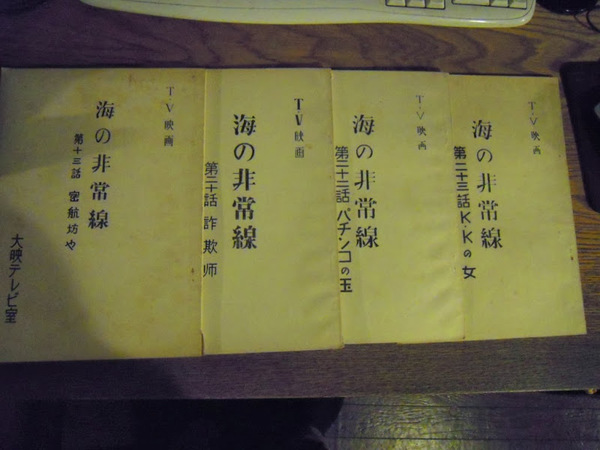 TV映画
海の非常線
第十三話 密航坊や
大映テレビ室
TV映画
海の非常線
第二十話 詐欺师
TV映画
海の非常線
第二十二話 パチンコの玉
TV映画
海の非常線
第二十三話 K・Kの女